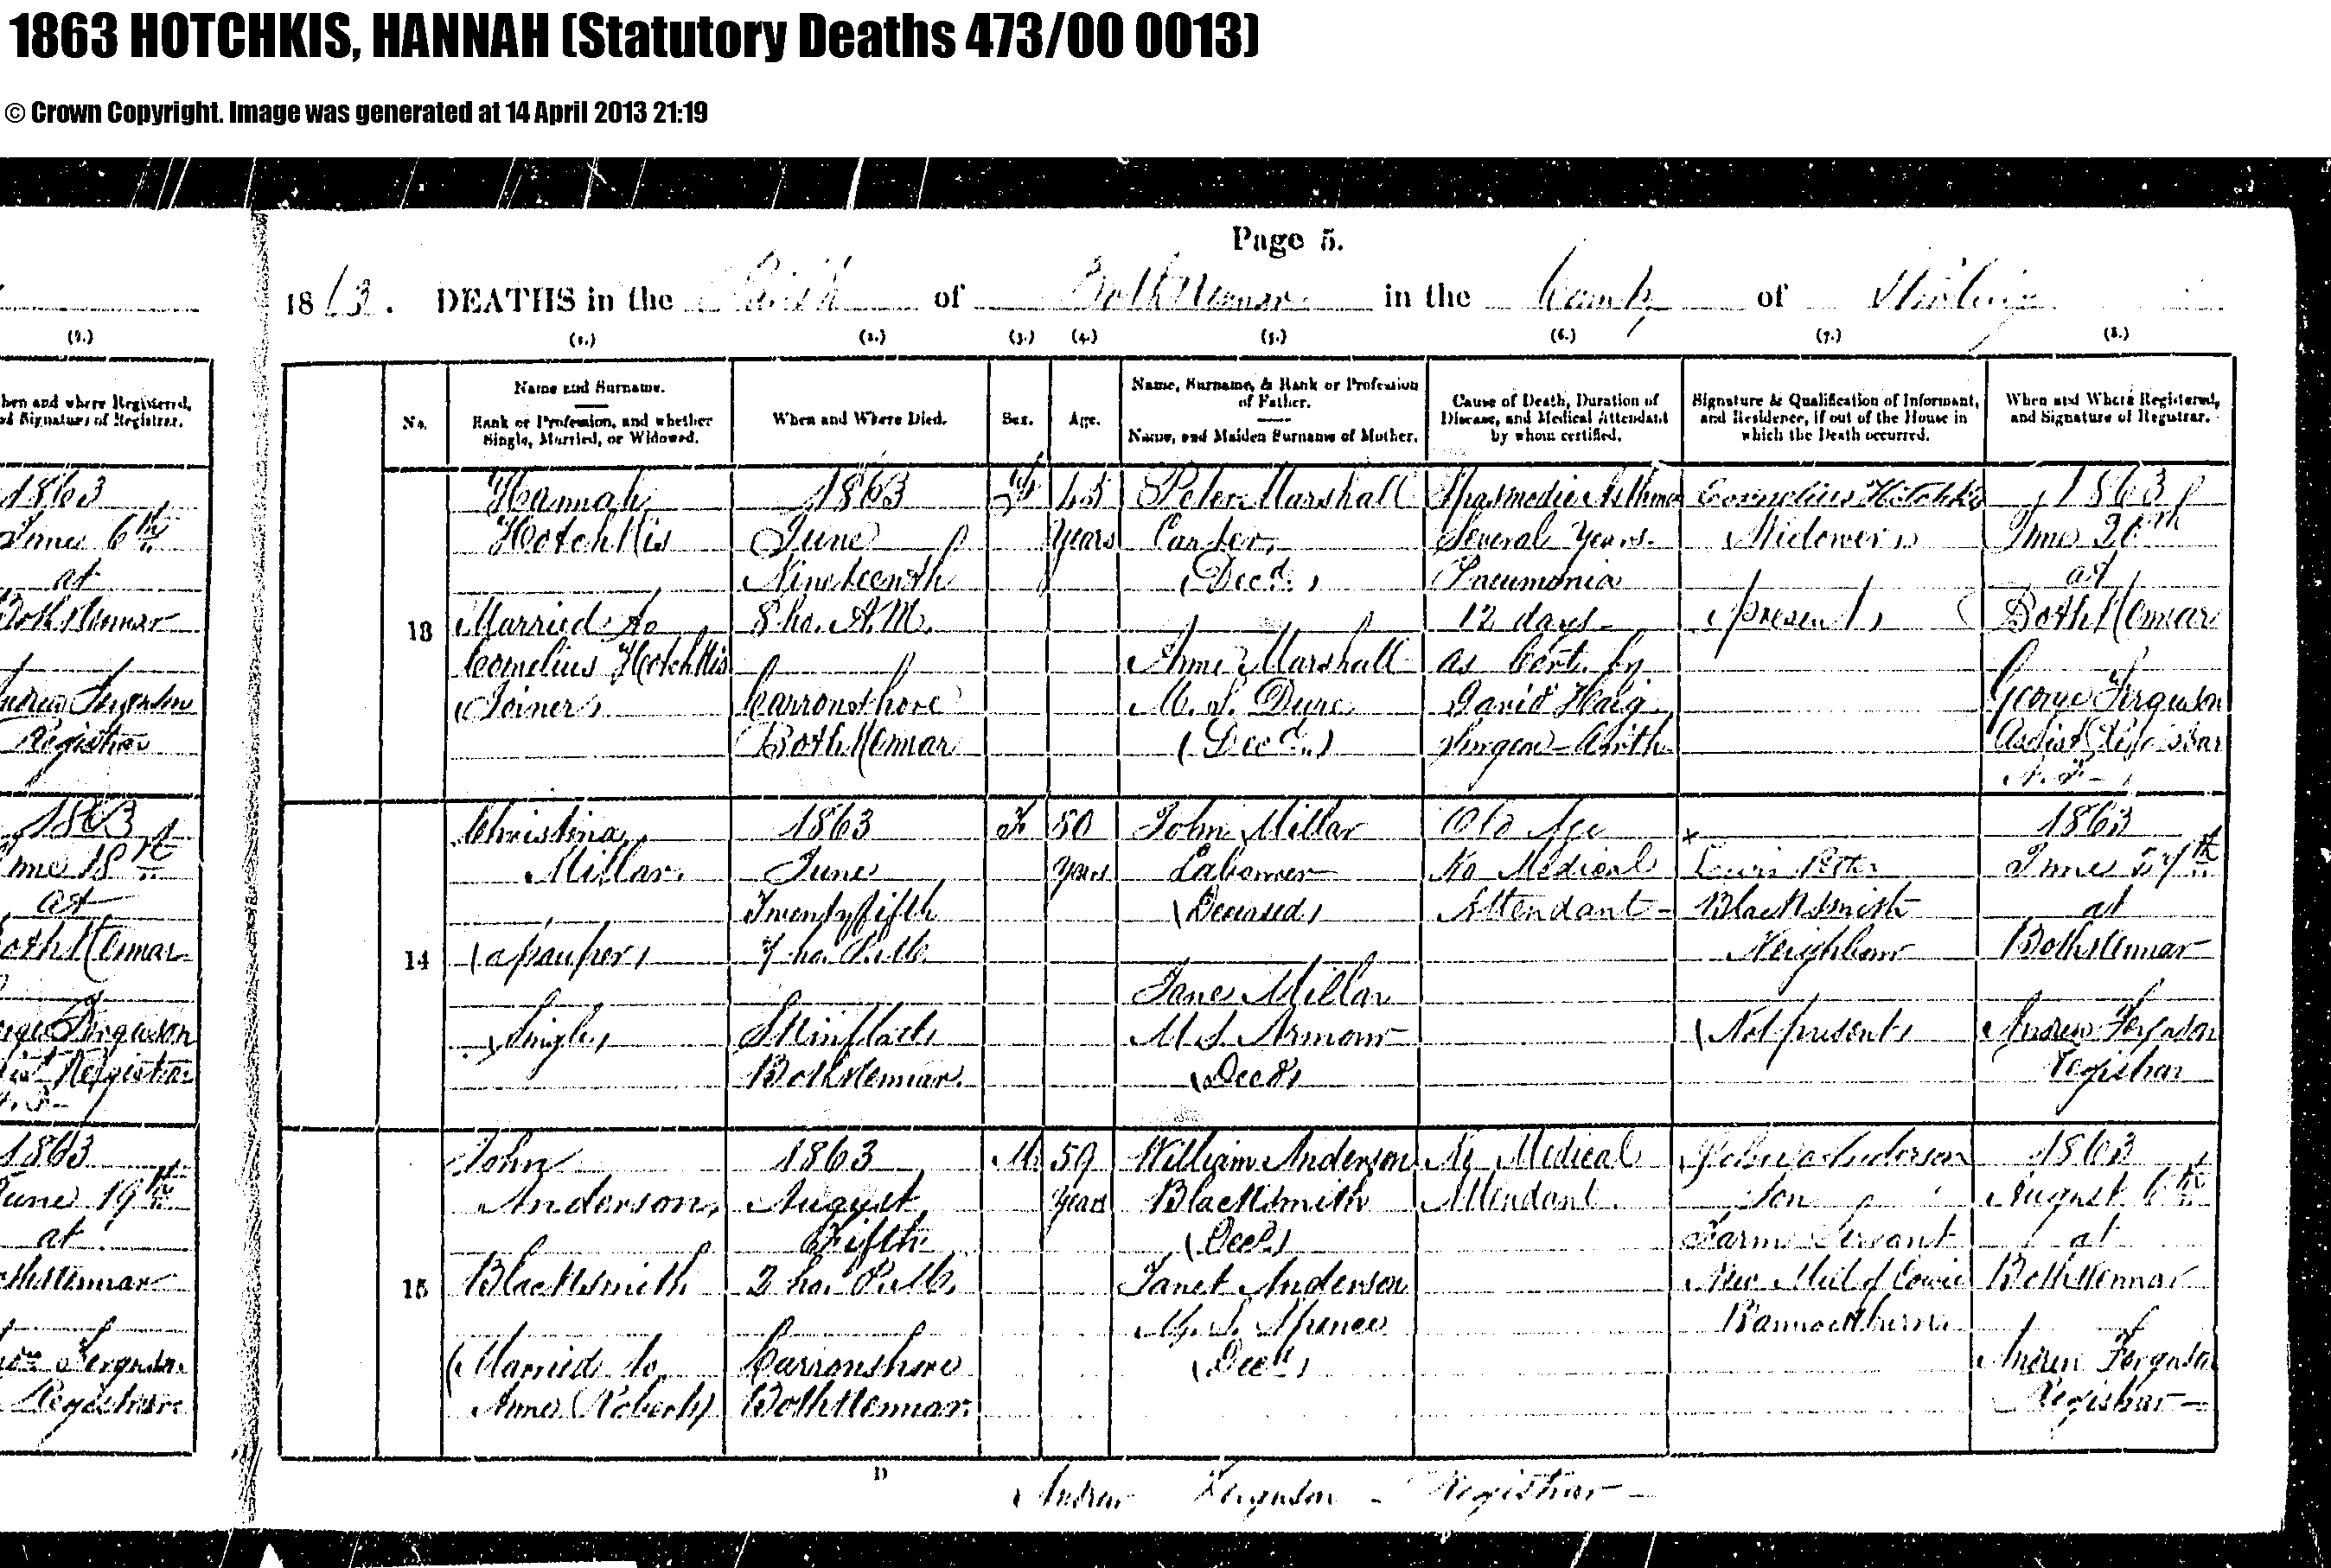 1863 HOTCHKIS, HANNAH (Statutory Deaths 473/00 0013)
© Crown Copyright. Image was generated at 14 April 2013 21:19
Page 5.
1863. DEATHS in the Parish of Bothkennar in the County of Stirling
(9.) (1.) (2.) (3.) (4.) (5.) (6.) (7.) (8.)
hen and where Registered,
d Signature of Registrar.
1863
June 6th
at
Bothkennar
Andrew Ferguson
Registrar
1863
June 18th
at
Bothkennar
George Ferguson
Registrar
1863
June 19th
at
Bothkennar
Ferguson
Registrar
No.
Name and Surname.
Rank or Profession, and whether
Single, Married, or Widowed.
When and Where Died.
Sex.
Age.
Name, Surname, & Rank or Profession
of Father.
Name, and Maiden Surname of Mother.
Cause of Death, Duration of
Disease, and Medical Attendant
by whom certified.
Signature & Qualification of Informant,
and Residence, if out of the House in
which the Death occurred.
When and Where Registered,
and Signature of Registrar.
13
Hannah
Hotchkis
Married to
Cornelius Hotchkis
(Joiner)
1863
June
Nineteenth
8 ho. A.M.
Carronshore
Bothkennar
F
45
years
Peter Marshall
Carter
(Decd.)
Anne Marshall
M.S. Dure
(Decd.)
Spasmodic Asthma
Several Years.
Pneumonia
12 days
as Cert. by
David Haig
Surgeon Airth
Cornelius Hotchkis
Widower
(present)
1863
June 20th
at
Bothkennar
George Ferguson
Assist Registrar
14
Christina
Millar
(a pauper)
(Single)
1863
June
Twenty fifth
7 ho. P.M.
Skinflats
Bothkennar.
F
80
years
John Millar
Labourer
(Deceased)
Jane Millar
M.S. Armour
(Decd)
Old Age
No Medical
Attendant
x
Blacksmith
Neighbour
(Not present)
1863
June 27th
at
Bothkennar
Andrew Ferguson
Registrar
15
John
Anderson,
Blacksmith
(Married to
Anne Roberts)
1863
August
Fifth
2 ho. P.M.
Carronshore
Bothkennar.
M.
59
years
William Anderson
Blacksmith
(Decd.)
Janet Anderson
M.S. Spence
(Decd)
No Medical
Attendant.
Anderson
Son
Farm Servant
New Mill of Cowie
Bannockburn
1863
August 6th
at
Bothkennar
Andrew Ferguson
Registrar
D
Andrew Ferguson - Registrar